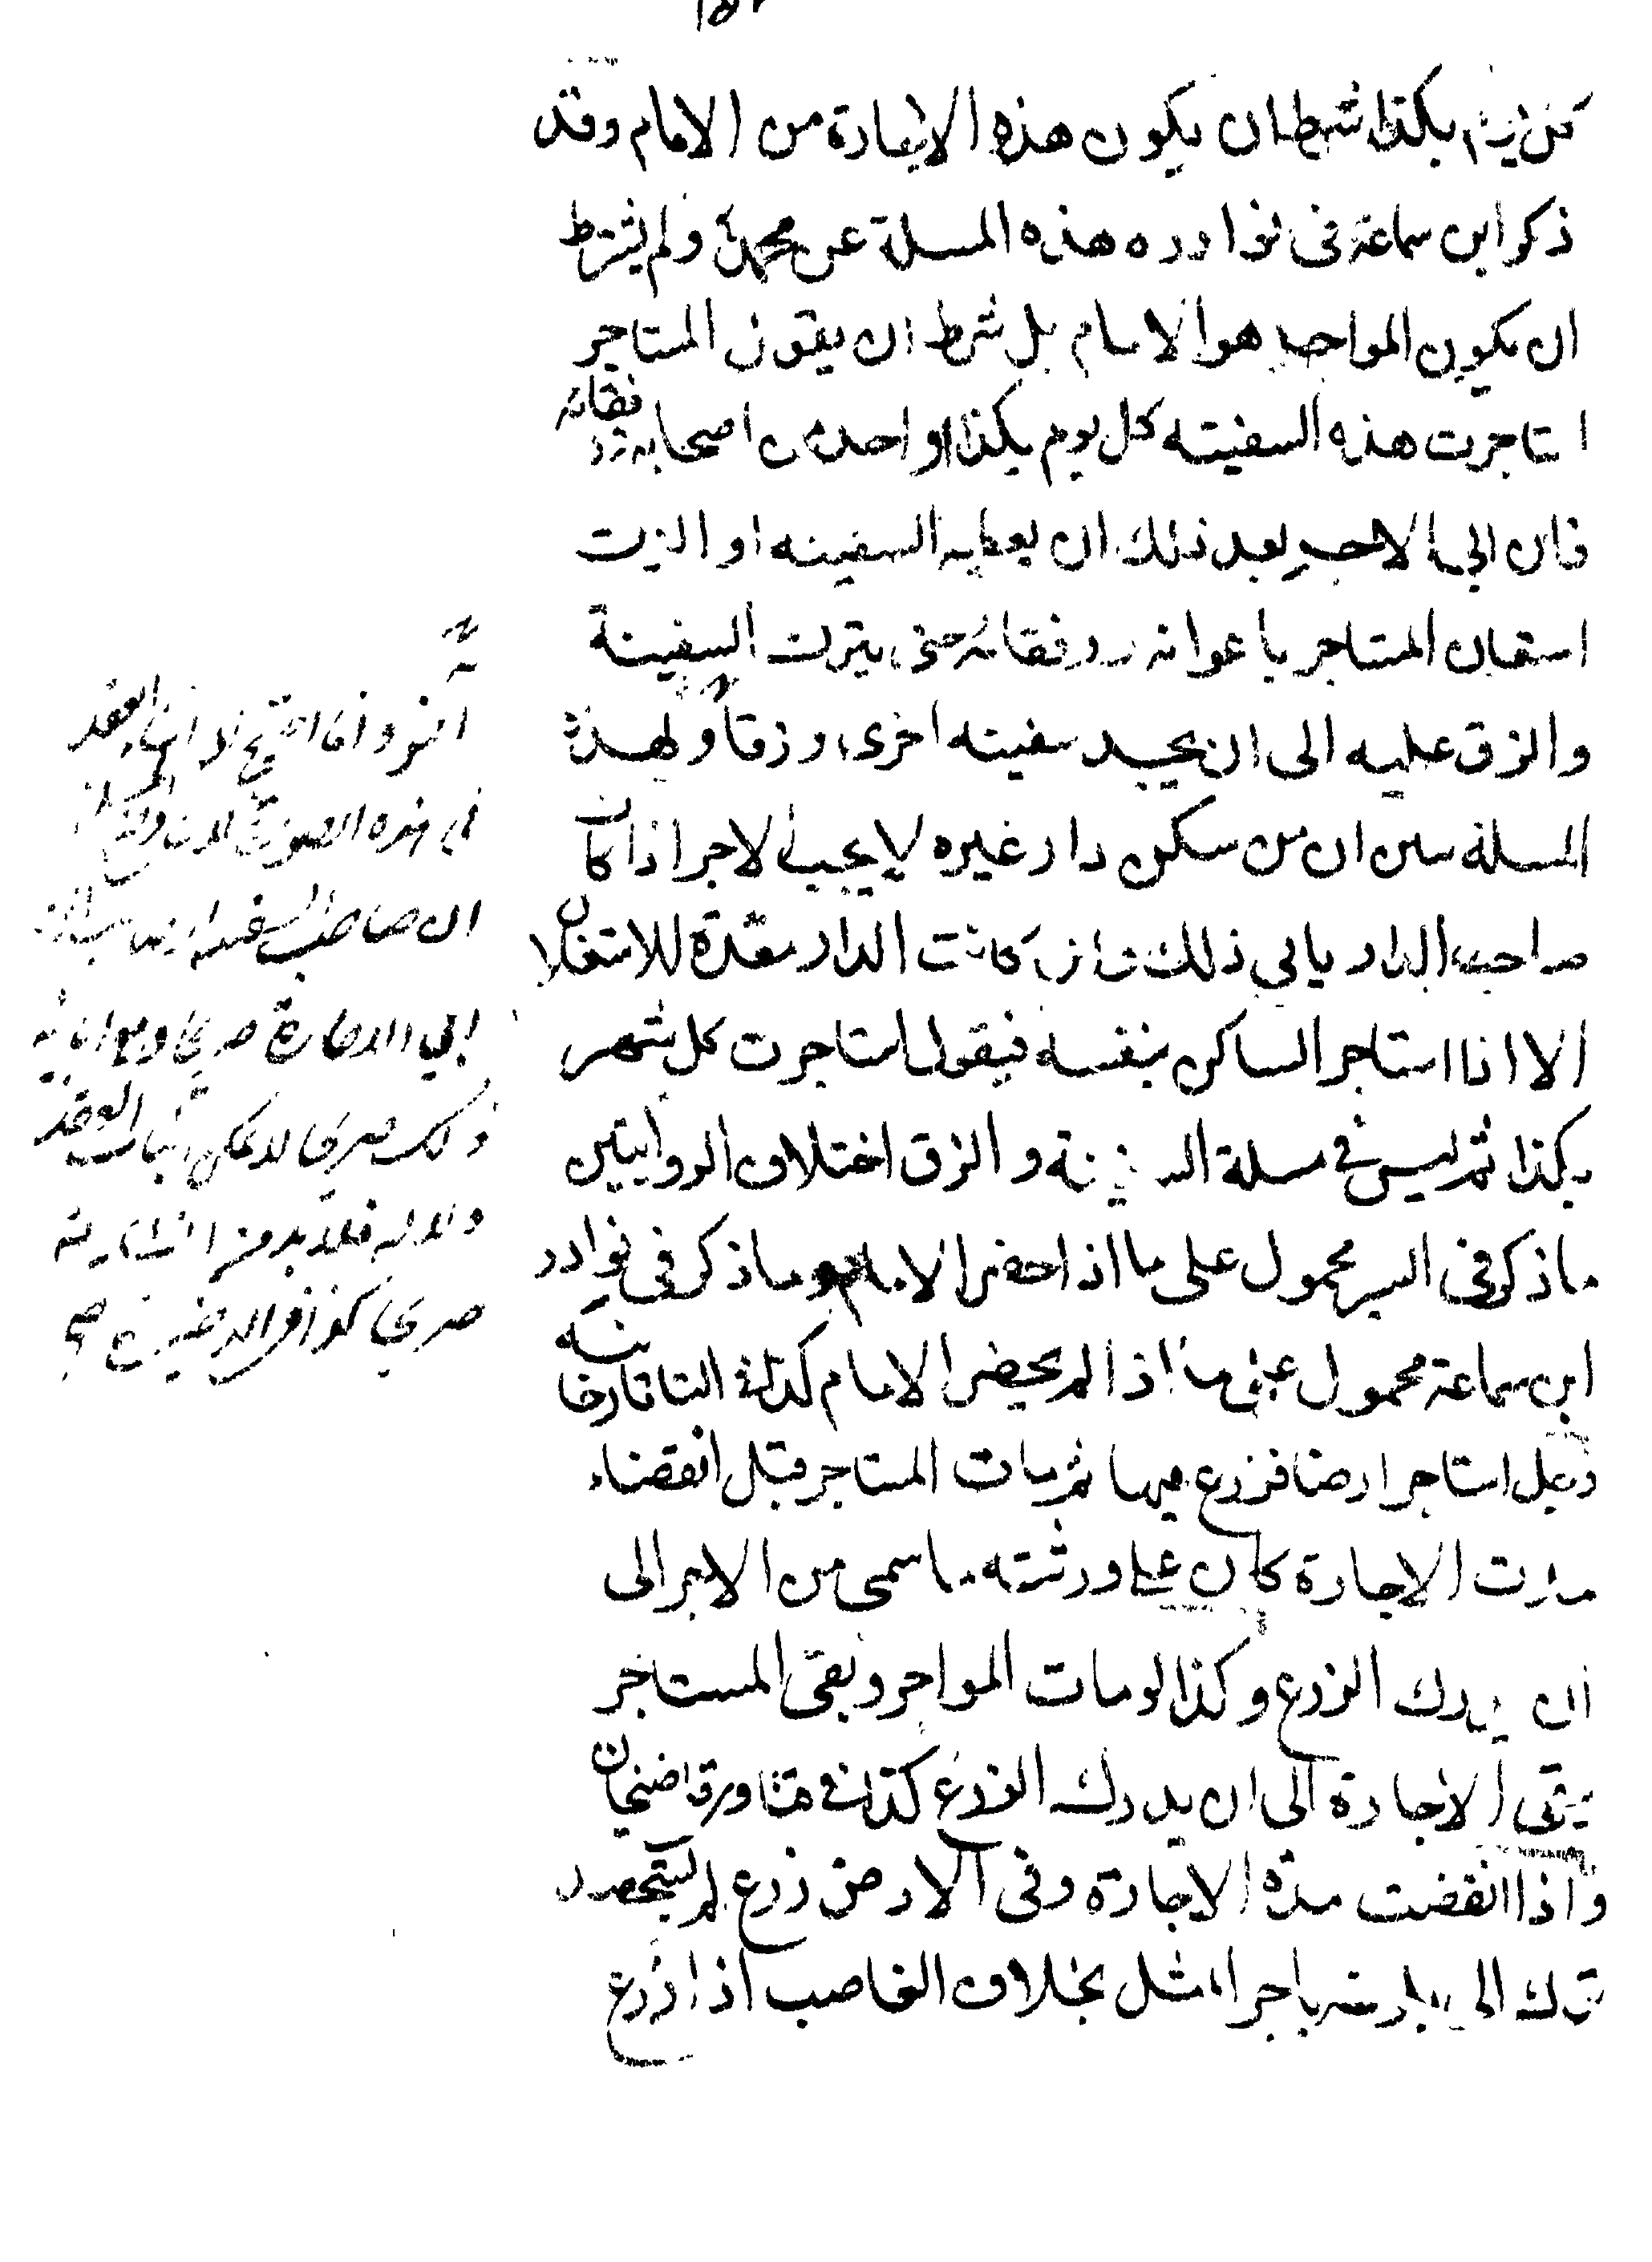 كل يوم بكذا شرط ان يكون هذه الاجارة من الامام وقد
ذكر ابن سماعة فى نوادره هذه المسلة عن محمد ولم يشترط
ان يكون المواجر هو الامام بل شرط ان يقول المتاجر
استاجرت هذه السفينه كل يوم بكذا او احد من اصحابه
فقائه
فان ابى الاجير بعد ذلك ان يعطيه السفينه او الزق
استعان المتاجر باعوانه ورفقائه حتى يترك السفينة
والزق عليه الى ان يجد سفينه اخرى وزقا ولهذه
المسلة سن ان من سكن دار غيره لا يجب الاجر اذا كان
صاحب الدار يابى ذلك وان كانت الدار معدة للاستغلال
الا اذا استاجر الساكن بنفسه فيقول استاجرت كل شهر
بكذا ثم ليس فى مسلة السفينة والزق اختلاف الروايتين
ماذكر فى السير محمول على ما اذا حضر الامام وما ذكر فى نوادر
ابن سماعة محمول على ما اذا لم يحضر الامام كذا فى التاتارخانيه
رجل استاجر ارضا فزرع فيها ثم مات المستاجر قبل انقضاء
مدت الاجارة كان على ورثته ما سمى من الاجر الى
ان يدرك الزرع وكذا لو مات المواجر وبقى المستاجر
يبقى الاجارة الى ان يدرك الزرع كذا فى فتاوى قاضيخان
واذا انقضت مدة الاجارة وفى الارض زرع لم يستحصد
ترك الى باجر المثل بخلاف الغاصب اذا زرع
العقد
فى هذه الصورة لان
ان صاحب السفينه
ابى الاجارة صريحا
ذلك صريحا لا يمكن اثبات العقد
دلالة فلا بد من
صريحا كذا فى الذخيرة صح